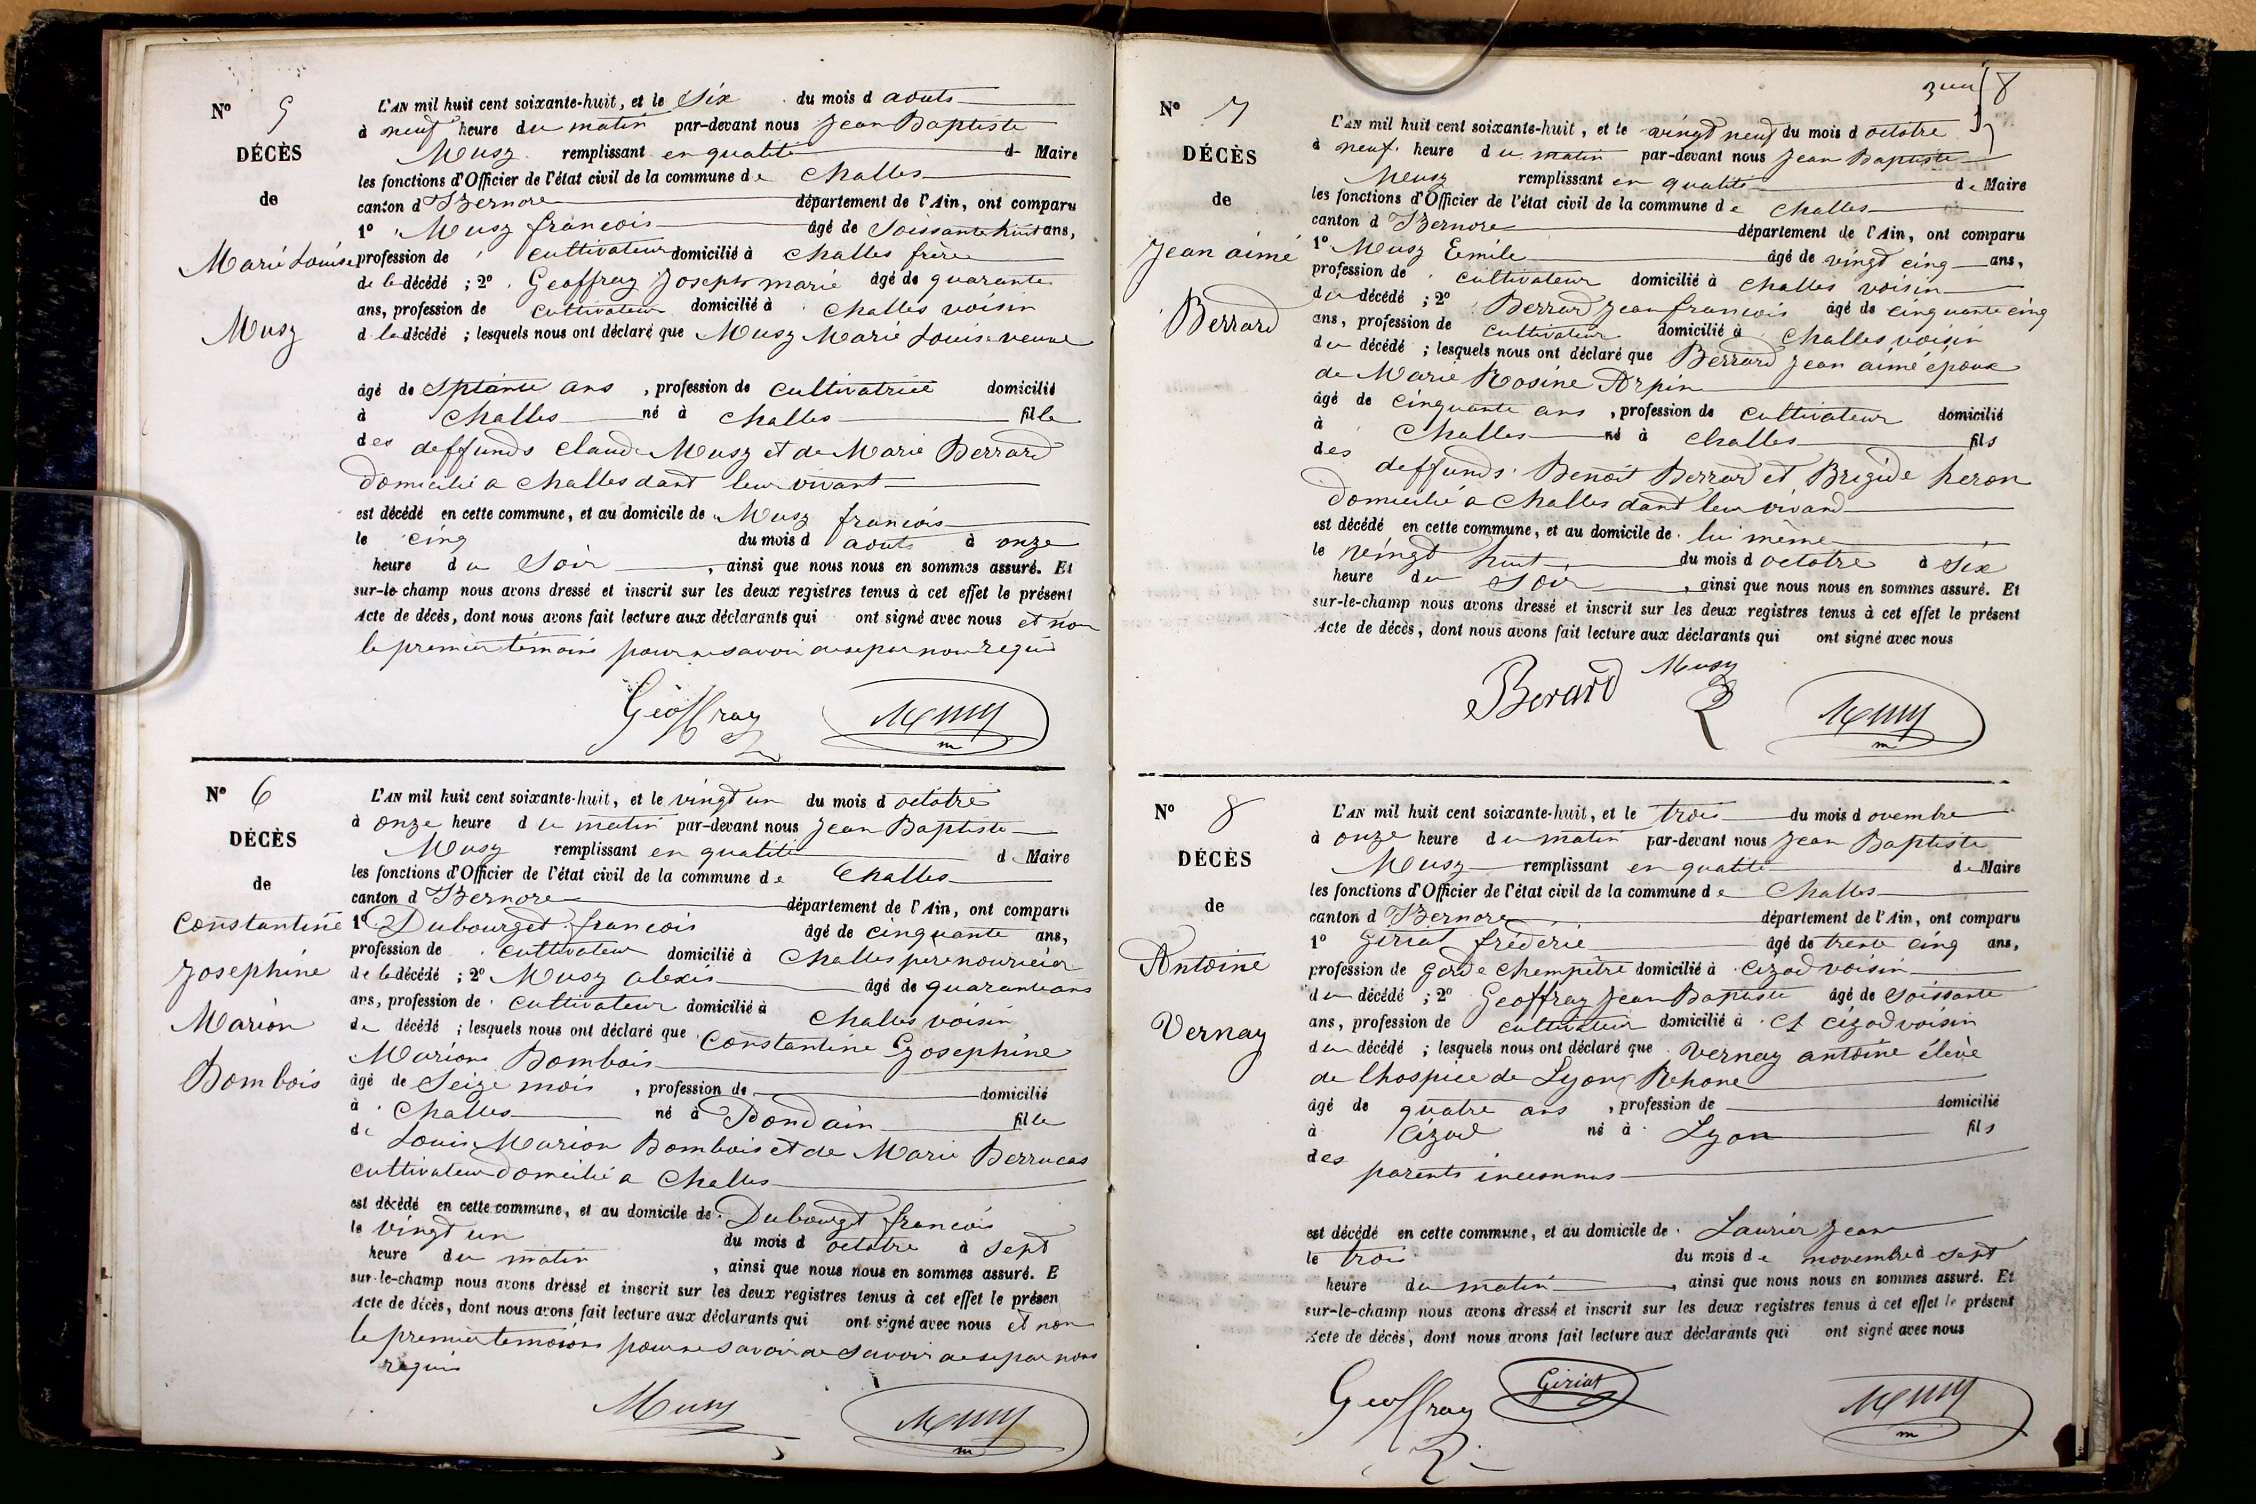 N° 5
DÉCÈS
de
Marie Louise
Musy
L'AN mil huit cent soixante-huit, et le Six du mois d aouts
à neuf heure du matin par-devant nous Jean Baptiste
Musy remplissant en qualité d Maire
les fonctions d'Officier de l'état civil de la commune de Challes
canton d Izernore département de l'Ain, ont comparu
1° Musy francois âgé de Soissante huit ans,
profession de cultivateur domicilié à Challes frère
de la décédé ; 2° Geoffray Joseph marie âgé de quarante
ans, profession de cultivateur domicilié à Challes voisin
d la décédé ; lesquels nous ont déclaré que Musy Marie Louise veuve
âgé de Sptante ans , profession de cultivatrice domicilié
à Challes né à Challes fille
des deffunds Claude Musy et de Marie Berrard
domicilié a Challes dant leur vivant
est décédé en cette commune, et au domicile de Musy francois
le cinq du mois d aouts à onze
heure du Soir , ainsi que nous nous en sommes assuré. Et
sur-le-champ nous avons dressé et inscrit sur les deux registres tenus à cet effet le présent
Acte de décès, dont nous avons fait lecture aux déclarants qui ont signé avec nous et non
le premier témoins pour ne savoir de se par nous requis
Geoffray Musy
m
N° 6
DÉCÈS
de
Constantine
Josephine
Marion
Bombois
L'AN mil huit cent soixante-huit, et le vingt un du mois d octobre
à onze heure du matin par-devant nous Jean Baptiste
Musy remplissant en qualité d Maire
les fonctions d'Officier de l'état civil de la commune de Challes
canton d Izernore département de l'Ain, ont comparu
1° Dubourget francois âgé de cinquante ans,
profession de cultivateur domicilié à Challes pere nouricier
de la décédé ; 2° Musy alexis âgé de quarante ans
ans, profession de cultivateur domicilié à Challes voisin
de décédé ; lesquels nous ont déclaré que Constantine Josephine
Marion Bombois
âgé de Seize mois , profession de domicilié
à Challes né à Dondain fille
de Louis Marion Bombois et de Marie Berrucas
cultivateur domicilié a Challes
est décédé en cette commune, et au domicile de Dubourget francois
le vingt un du mois d octobre à Sept
heure du matin , ainsi que nous nous en sommes assuré. E
sur-le-champ nous avons dressé et inscrit sur les deux registres tenus à cet effet le présen
Acte de décès, dont nous avons fait lecture aux déclarants qui ont signé avec nous et non
le premier temoins pour ne savoir de savoir de se par nous
requis
Musy Musy
m
8
N° 7
DÉCÈS
de
Jean aimé
Berrard
L'AN mil huit cent soixante-huit, et le vingt neuf du mois d octobre
à neuf heure du matin par-devant nous Jean Baptiste
Musy remplissant en qualité de Maire
les fonctions d'Officier de l'état civil de la commune de Challes
canton d Izernore département de l'Ain, ont comparu
1° Musy Emile âgé de vingt cinq ans,
profession de cultivateur domicilié à Challes voisin
du décédé ; 2° Berrard Jean francois âgé de cinquante cinq
ans, profession de cultivateur domicilié à Challes voisin
du décédé ; lesquels nous ont déclaré que Berrard Jean aimé époux
de Marie Rosine Arpin
âgé de cinquante ans , profession de cultivateur domicilié
à Challes né à Challes fils
des deffunds Benoit Berrard et Brigide heron
domicilié a Challes dant leu vivand
est décédé en cette commune, et au domicile de lui même
le veingt huit du mois d octobre à Six
heure du Soir , ainsi que nous nous en sommes assuré. Et
sur-le-champ nous avons dressé et inscrit sur les deux registres tenus à cet effet le présent
Acte de décès, dont nous avons fait lecture aux déclarants qui ont signé avec nous
Berard Musy Musy
m
N° 8
DÉCÈS
de
Antoine
Vernay
L'AN mil huit cent soixante-huit, et le trois du mois d ovembre
à onze heure du matin par-devant nous Jean Baptiste
Musy remplissant en qualité de Maire
les fonctions d'Officier de l'état civil de la commune de Challes
canton d Izernore département de l'Ain, ont comparu
1° Giriat fréderic âgé de trente cinq ans,
profession de garde Chempêtre domicilié à Cizod voisin
du décédé ; 2° Geoffray Jean Baptiste âgé de soissante
ans, profession de cultivateur domicilié à cizod voisin
du décédé ; lesquels nous ont déclaré que Vernay antoine élève
de lhospice de Lyon Rehone
âgé de quatre ans , profession de domicilié
à Cizod né à Lyon fils
des parents inconnus
est décédé en cette commune, et au domicile de Laurier Jean
le trois du mois de novembre à sept
heure du matin , ainsi que nous nous en sommes assuré. Et
sur-le-champ nous avons dressé et inscrit sur les deux registres tenus à cet effet le présent
Acte de décès, dont nous avons fait lecture aux déclarants qui ont signé avec nous
Geoffray Giriat Musy
m